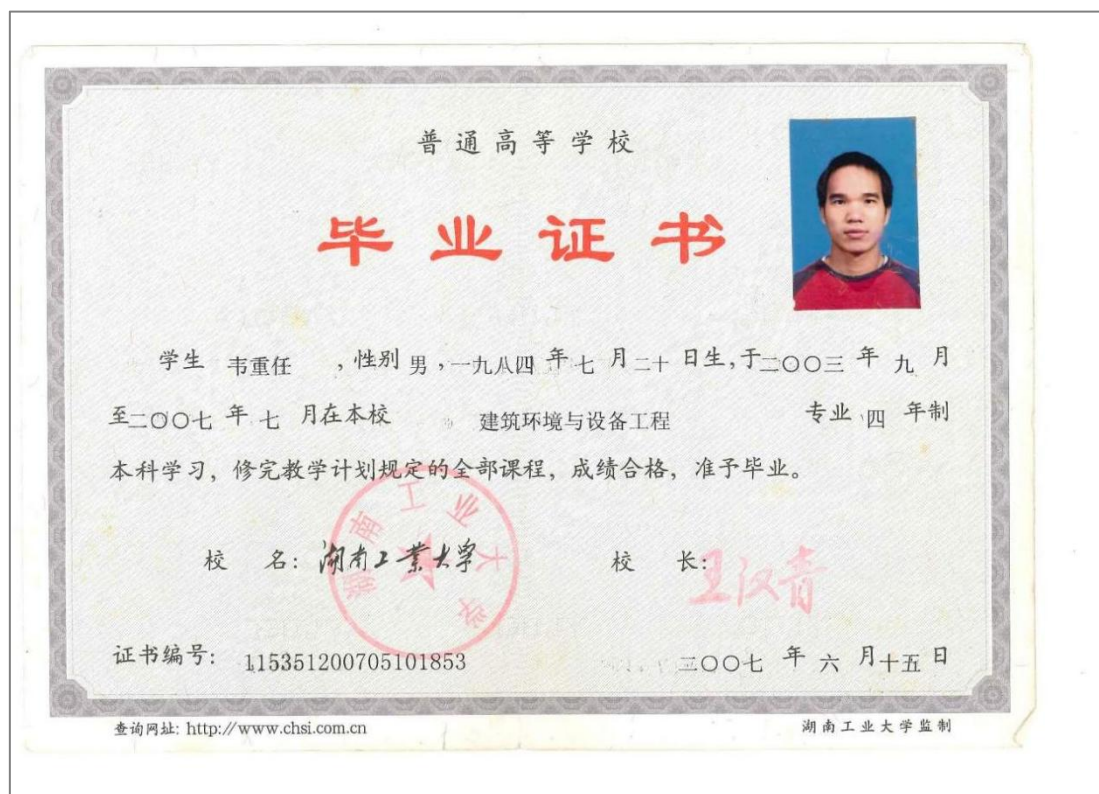 普通高等学校
毕业证书
学生 韦重任 ,性别 男 ,一九八四 年 七 月 二十 日生,于二〇〇三 年 九 月
至二〇〇七 年 七 月在本校 建筑环境与设备工程 专业 四 年制
本科学习，修完教学计划规定的全部课程，成绩合格，准予毕业。
校 名: 湖南工业大学 校 长: 王汉青
湖南工业大学
证书编号: 115351200705101853 二〇〇七 年 六 月 十五 日
查询网址: http://www.chsi.com.cn 湖南工业大学监制